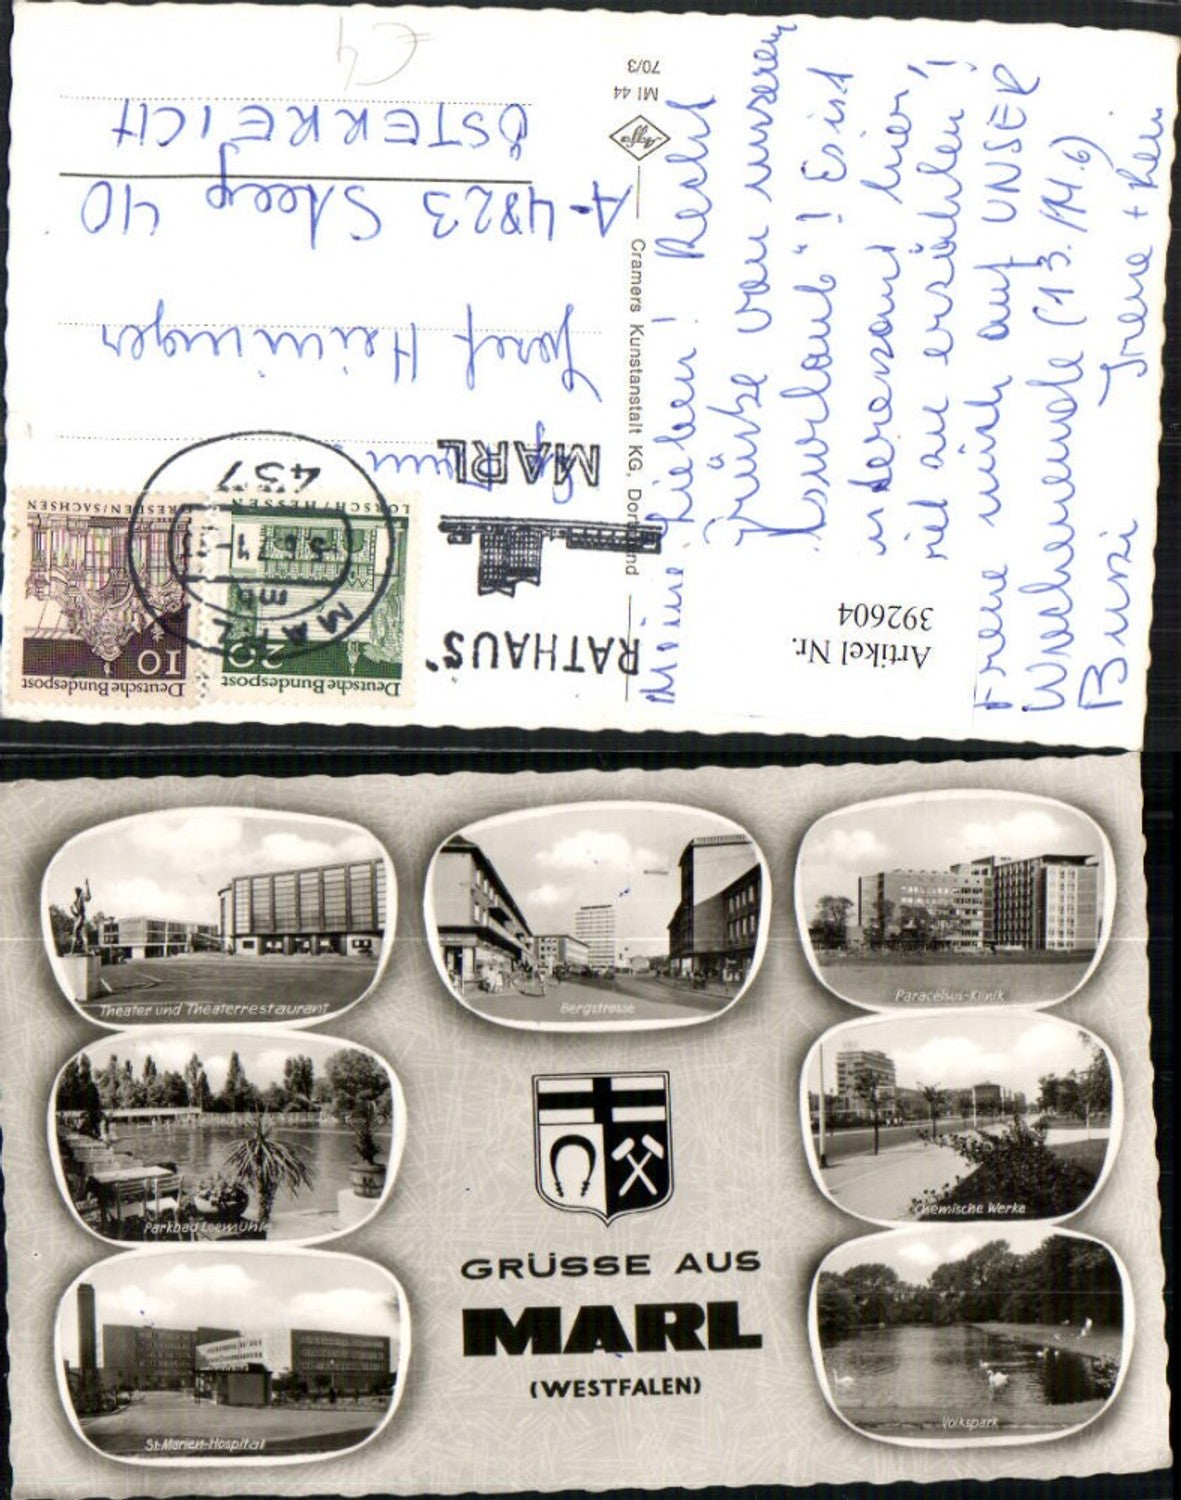 Meine Lieben! Recht
Grüße von unserem
"Kurlaub"! Es ist
interessant hier,
viel zu erzählen!
Freue mich auf UNSER
Wochenende (13./14.6)
Bussi Irene +
Artikel Nr.
392604
Cramers Kunstanstalt KG, Dortmund
Agfa
MI 44
70/3
RATHAUS
MARL
MARL
457
Deutsche Bundespost
20
LORSCH/HESSEN
Deutsche Bundespost
10
DRESDEN/SACHSEN
Josef Heininger
A-4823 Steeg 40
ÖSTERREICH
Theater und Theaterrestaurant
Bergstrasse
Paracelsus-Klinik
Parkbad Loemühle
Chemische Werke
St. Marien-Hospital
Volkspark
GRÜSSE AUS
MARL
(WESTFALEN)